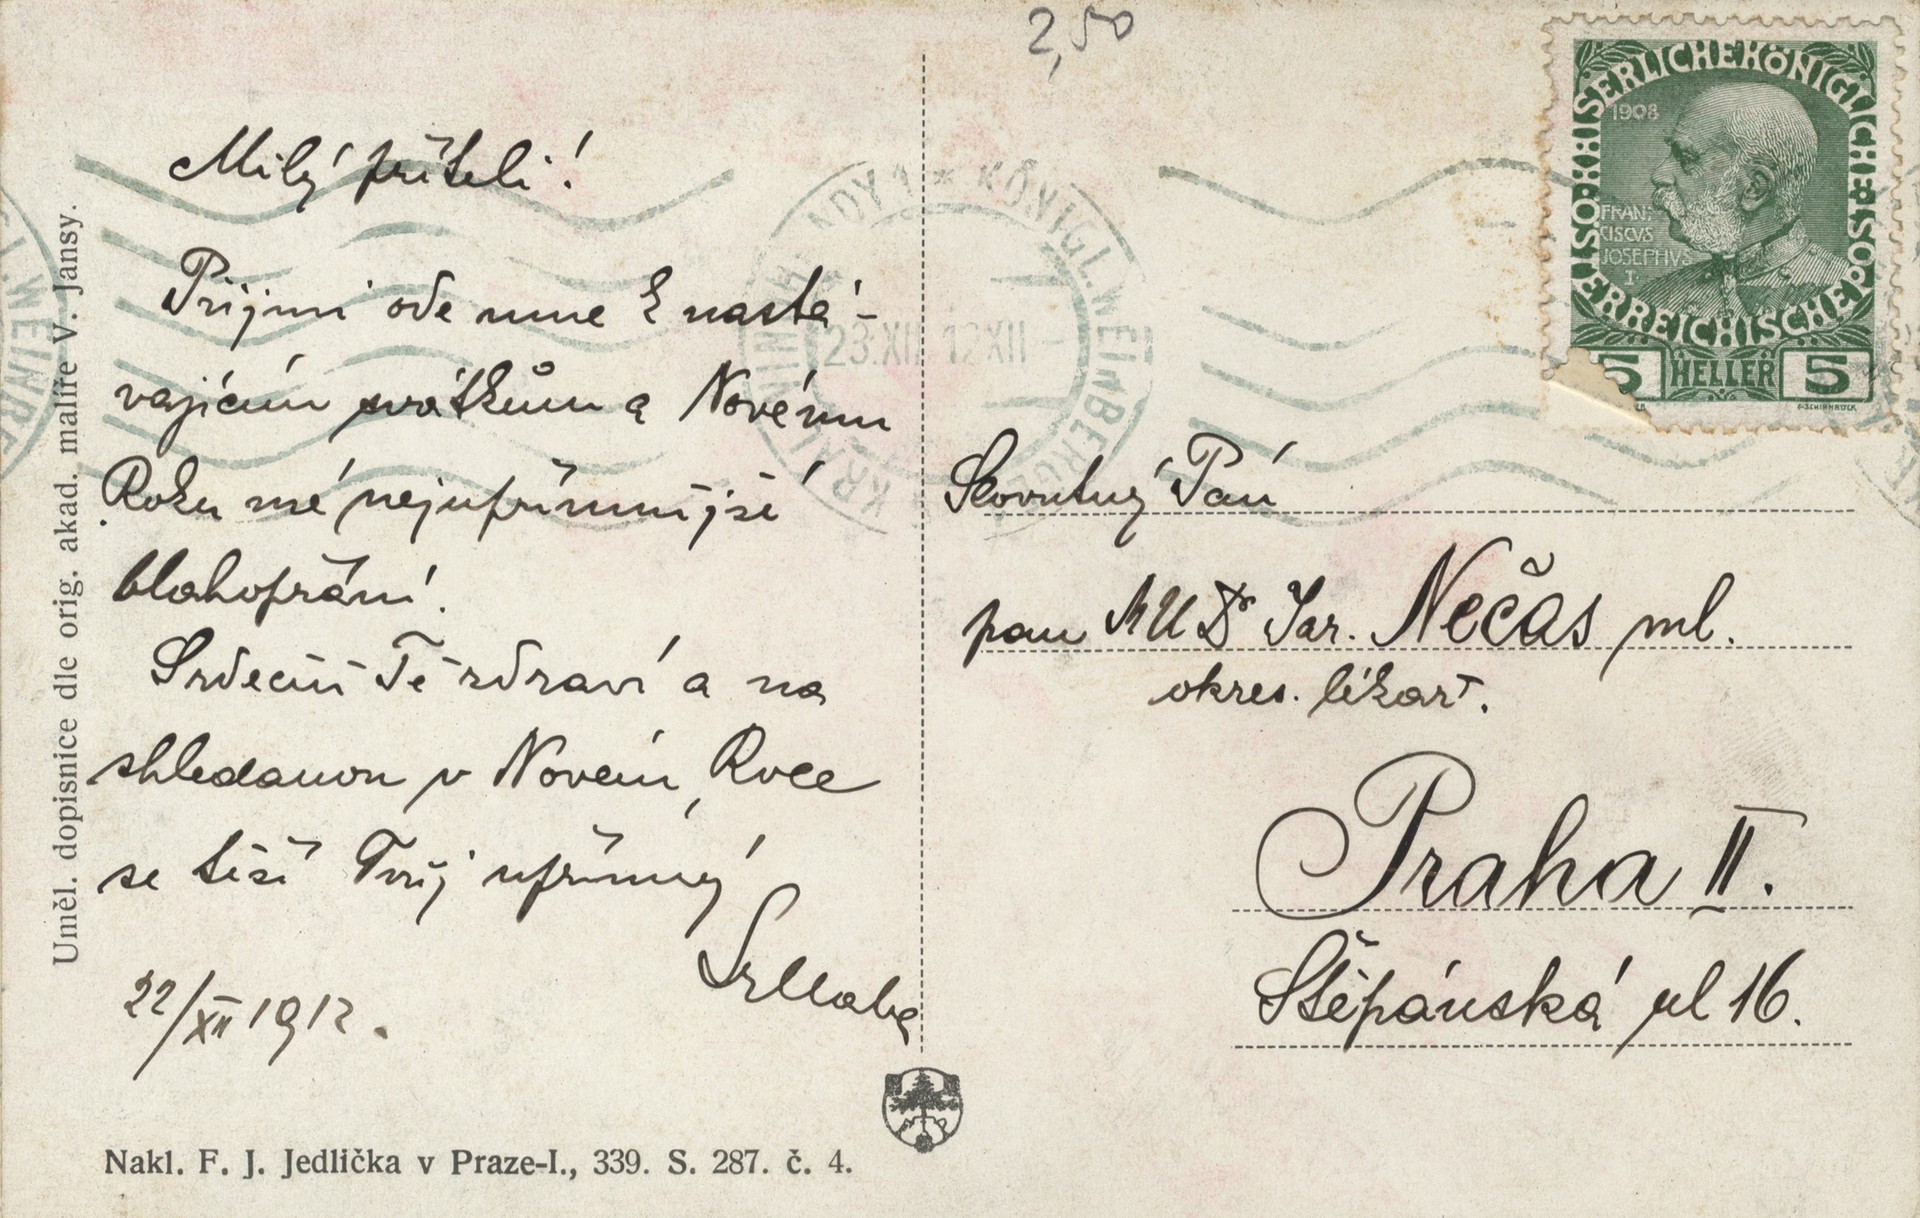 2,50
Milý příteli!
Přijmi ode mne k nastá-
vajícím svátkům a Novému
Roku mé nejupřímnější
blahopřání.
Srdečně Tě zdraví a na
shledanou v Novém Roce
se těší Tvůj upřímný
22/XII 1912.
Uměl. dopisnice dle orig. akad. malíře V. Jansy.
Nakl. F. J. Jedlička v Praze-I., 339. S. 287. č. 4.
KAISERLICHE KÖNIGLICHE ÖSTERREICHISCHE POST
1908
FRAN-
CISCVS
JOSEPHVS
I.
5 HELLER 5
KÖNIGL. WEINBERGE
23.XII 12 XII
Slovutný Pán
pan MUDr Jar. Nečas ml.
okres. lékař.
Praha II.
Štěpánská ul 16.